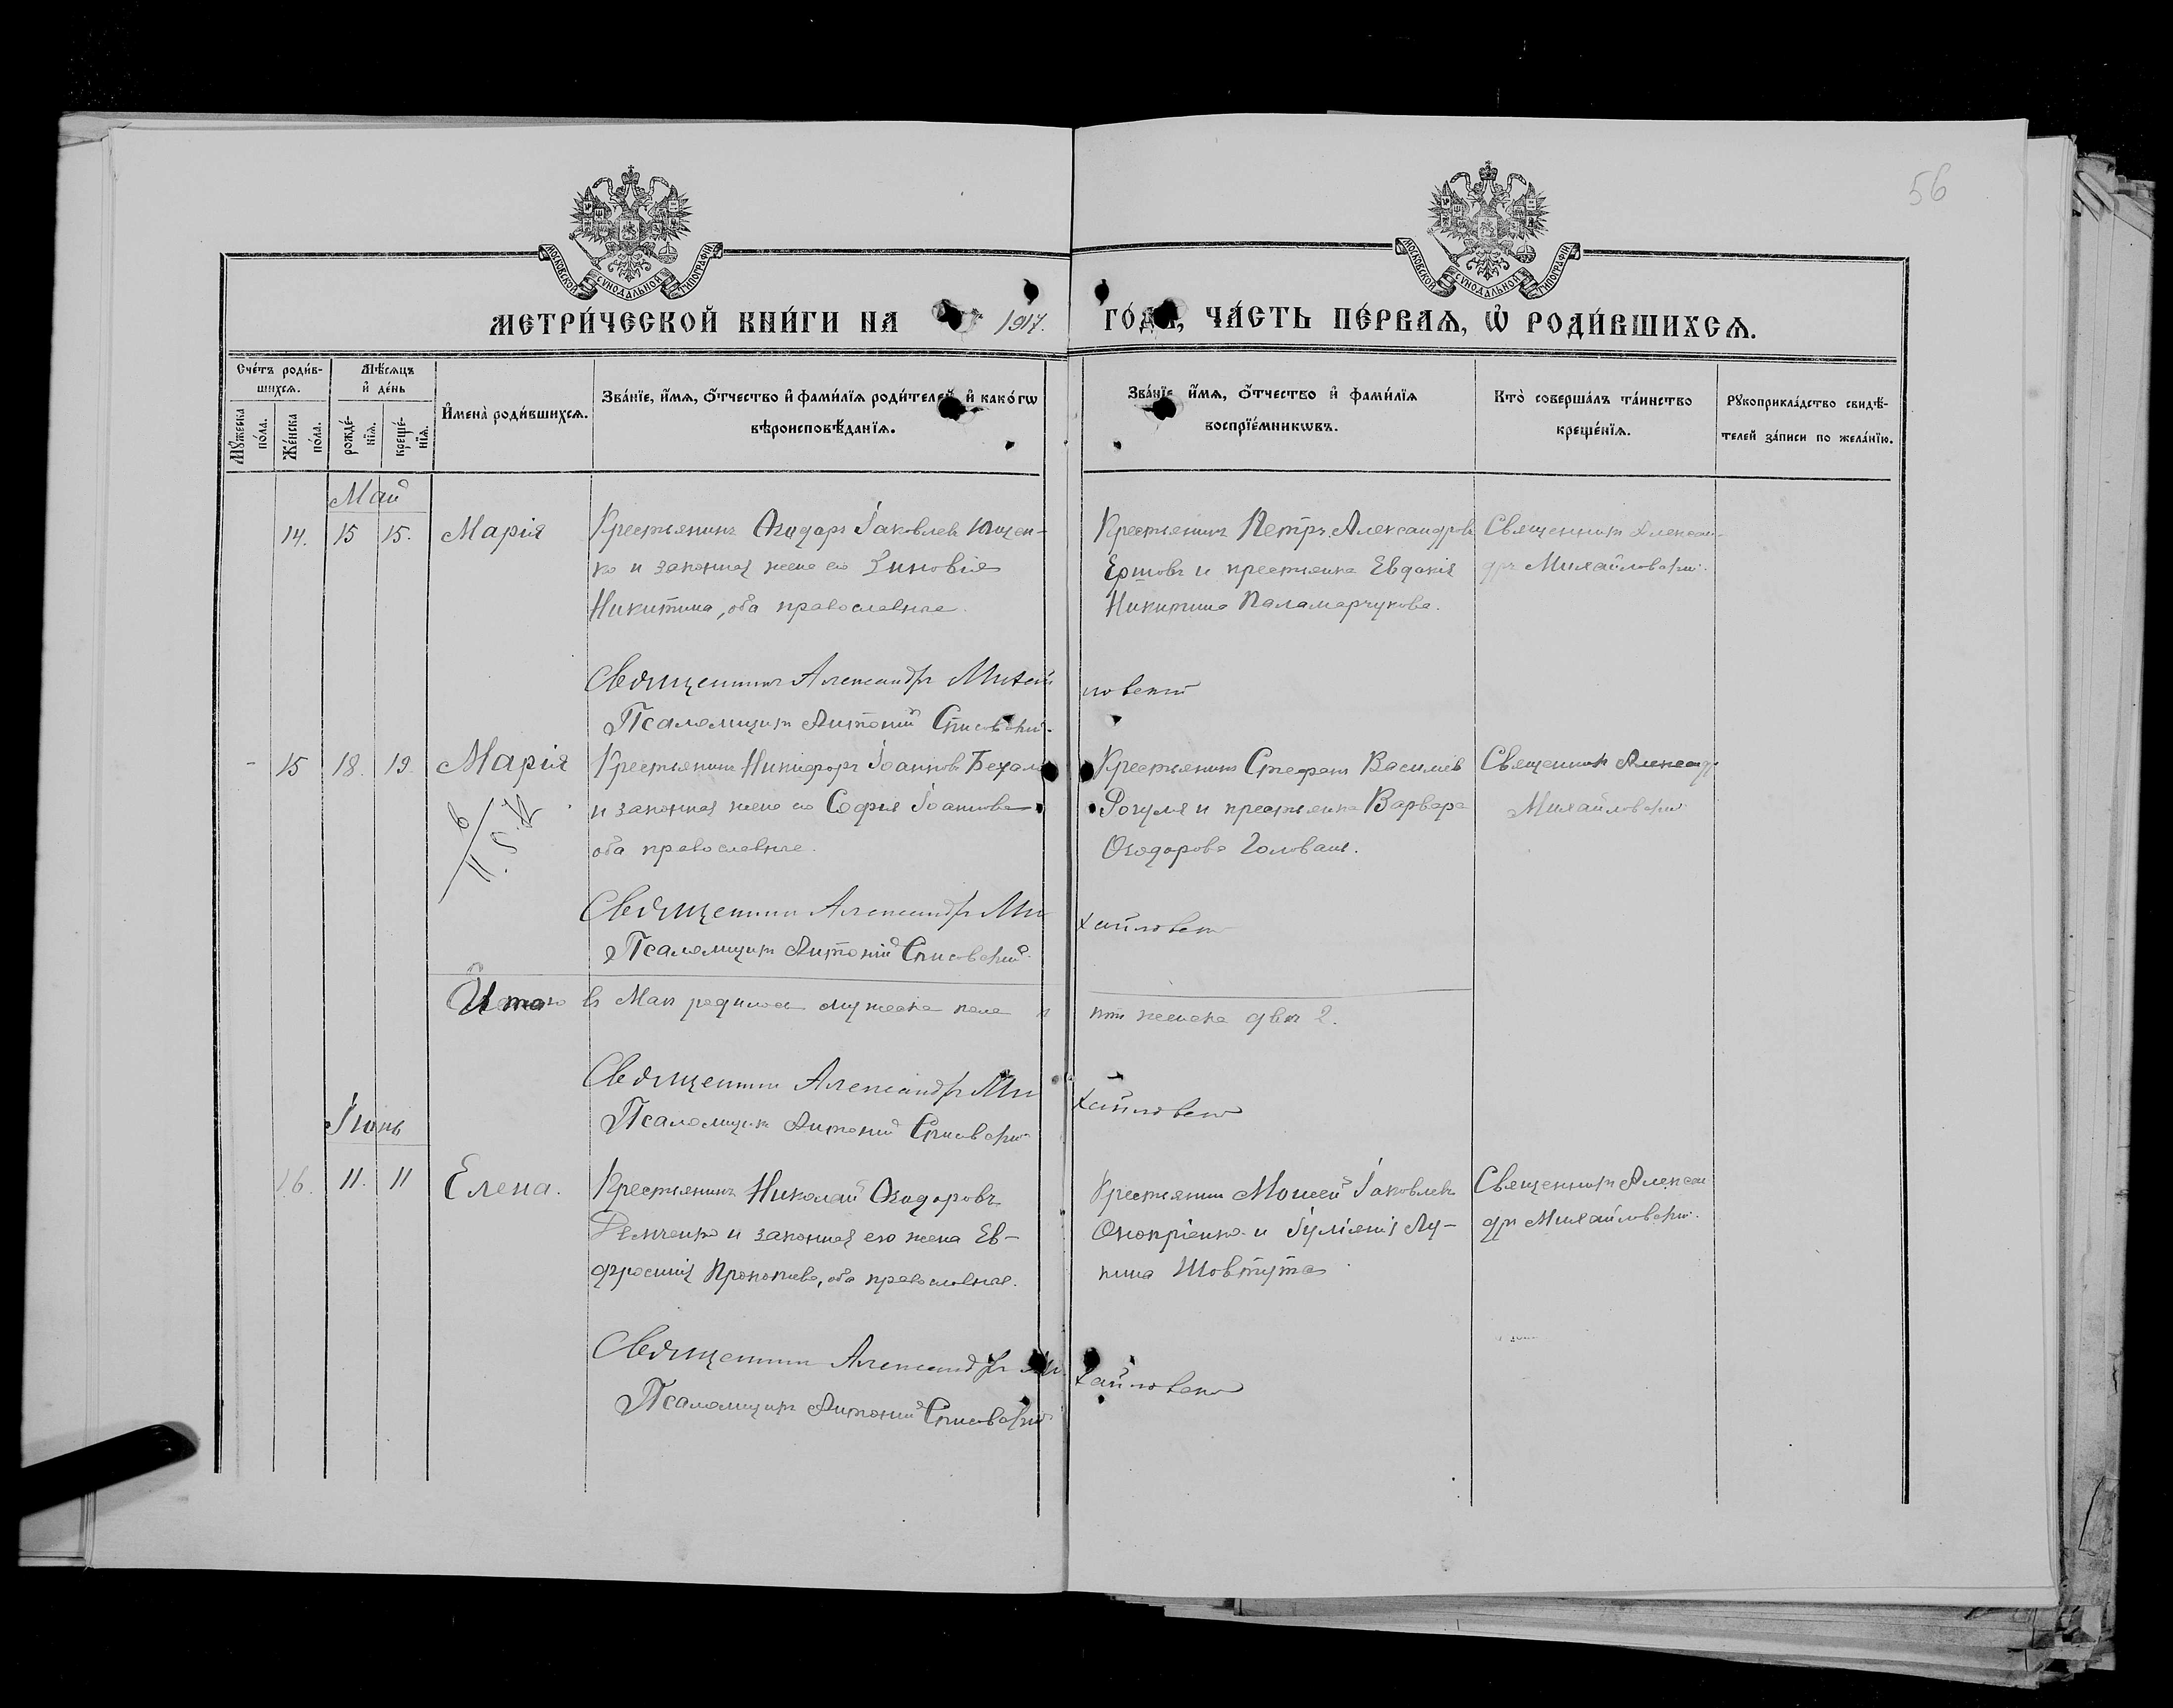 56
МОСКОВСКОЙ СУНОДАЛЬНОЙ ТИПОГРАФІИ
МОСКОВСКОЙ СУНОДАЛЬНОЙ ТИПОГРАФІИ
МЕТРИ́ЧЕСКОЙ КНИ́ГИ НА 1917. ГО́ДЪ, ЧА́СТЬ ПЕ́РВАЯ, Ѡ РОДИ́ВШИХСЯ.
Сче́тъ роди́в-
шихся.
Мѣ́сяцъ
и҆ де́нь
Мꙋ́жеска по́ла.
Же́нска по́ла.
рожде́-
нїя.
креще́-
нїя.
И҆мена̀ роди́вшихся.
Зва́нїе, и҆́мя, ѻ҆́тчество и҆ фами́лїя роди́телей, и҆ како́гѡ
вѣроисповѣ́данїя.
Зва́нїе, и҆́мя, ѻ҆́тчество и҆ фами́лїя
воспрїе́мникѡвъ.
Кто̀ соверша́лъ та́инство
креще́нїя.
Рꙋкоприкла́дство свидѣ́-
телей за́писи по жела́нїю.
Май
14. 15 15. Марія
Крестьянинъ Ѳеодоръ Іаковлевъ Ющен-
ко и законная жена его Зиновія
Никитина, оба православные.
Крестьянинъ Петръ Александровъ
Ершовъ и крестьянка Евдокія
Никитина Паламарчукова.
Священникъ Алексан-
дръ Михайловскій.
Священникъ Александръ Михайловскій
Псаломщикъ Антоній
- 15 18. 19. Марія
Крестьянинъ Никифоръ Іоанновъ
и законная жена его Софія Іоаннова
оба православные.
Крестьянинъ Стефанъ Василіев
Рогуля и крестьянка Варвара
Ѳеодорова Головань.
Священникъ Александръ
Михайловскій
Священникъ Александръ Михайловскій
Псаломщикъ Антоній
Итого въ Маѣ родилось мужеска пола женска двѣ 2.
Священникъ Александръ Михайловскій
Псаломщикъ Антоній
Іюнь
16. 11. 11 Елена.
Крестьянинъ Николай Ѳеодоровъ
Демченко и законная его жена Ев-
фросинія Прокопіева, оба православные.
Крестьянинъ Моисей Іаковлевъ
Онопріенко и Іуліанія Лу-
кина Шовтута
Священникъ Алексан
дръ Михайловскій.
Священникъ Александръ Михайловскій
Псаломщикъ Антоній